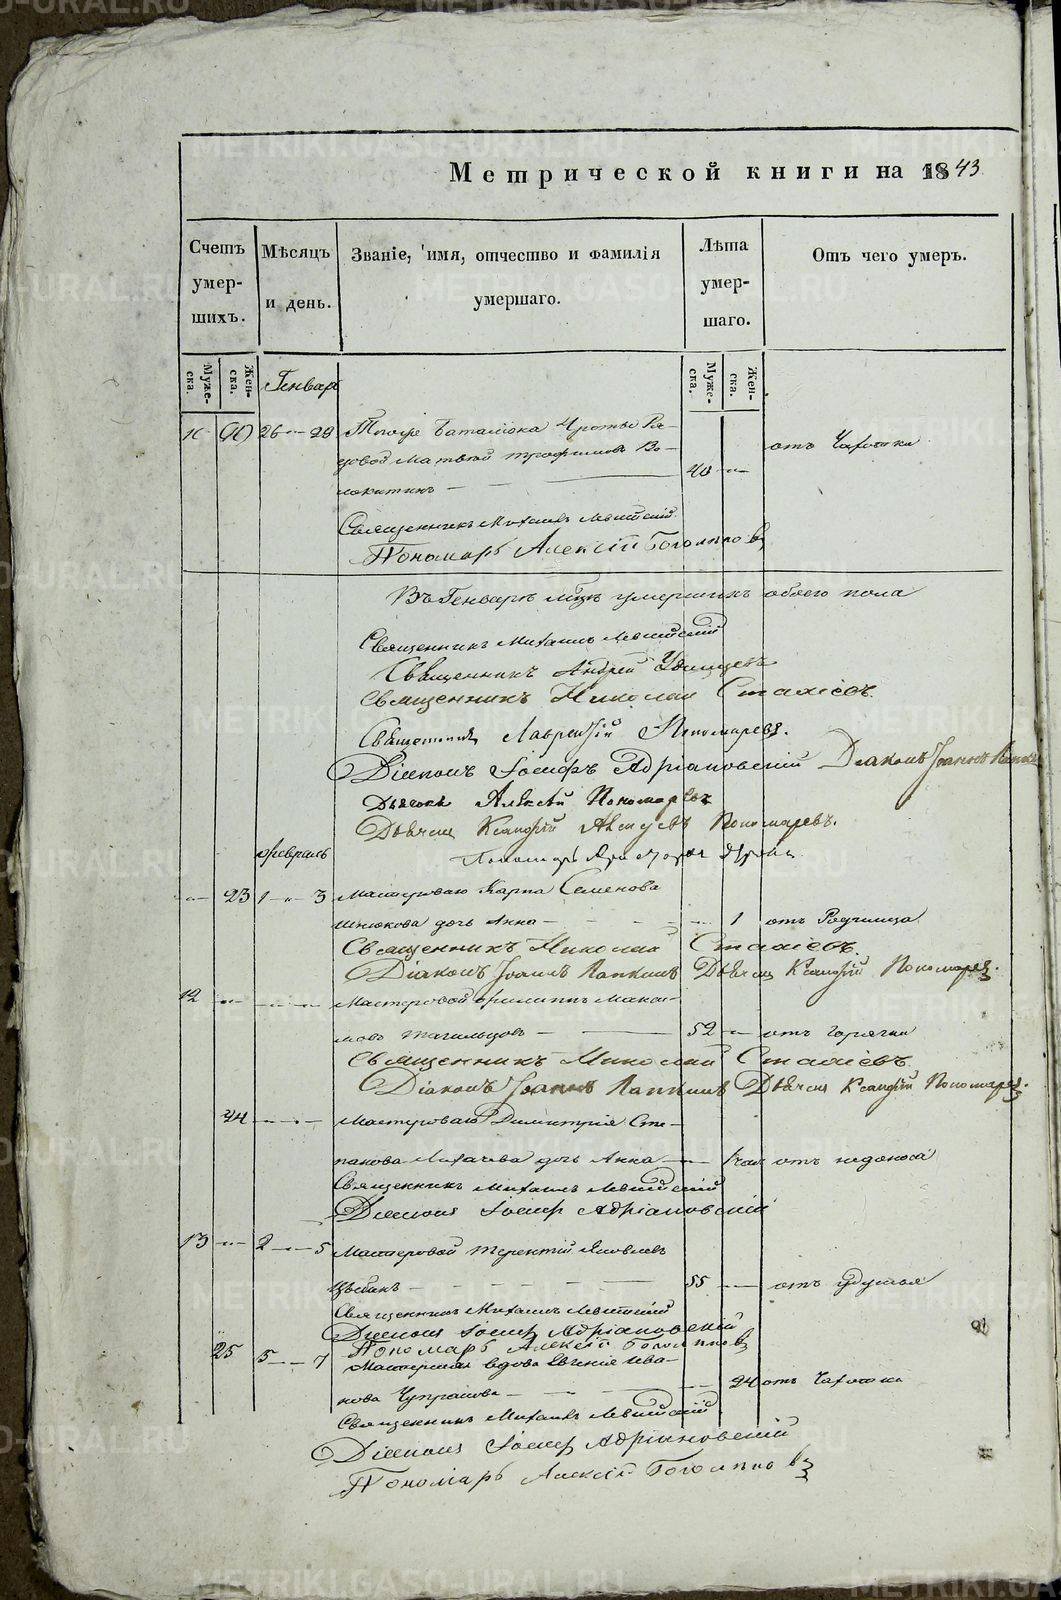 Метрической книги на 1843
Счетъ умершихъ.
Мѣсяцъ и день.
Званіе, имя, отчество и фамилія умершаго.
Лѣта умершаго.
Отъ чего умеръ.
Мужеска.
Женска.
Генварь
Мужеска.
Женска.
26 - 28
отъ Чахотки
довой Матвей Трофимовъ Во-
40
локитинъ
Священникъ Михаилъ Левитскій
Пономарь Алексій Боголѣповъ
Въ Генварѣ умершихъ обоего пола
Священникъ Михаилъ Левитскій
Священникъ Андрей Удинцевъ
Священникъ Николай Стахіевъ
Священникъ Лаврентій Пономаревъ.
Діаконъ Іосифъ Адріановскій Діаконъ Іоаннъ
Дьячокъ Алексѣй Пономаревъ
Дьячекъ Ксанфій Пономаревъ.
Пономарь
Февраль
23 1 - 3 Мастероваго Карпа Семенова
дочь Анна - 1 отъ Родимца
Священникъ Николай Стахіевъ
Діаконъ Іоаннъ Лапинъ Дьячекъ Ксанфій Пономаревъ.
12 Мастеровой Филиппъ Макси-
мовъ Тагильцовъ 52 отъ горячки
Священникъ Николай Стахіевъ
Діаконъ Іоаннъ Лапинъ Дьячекъ Ксанфій Пономаревъ.
Мастероваго Димитрія Сте-
панова Лихачева дочь Анна - отъ недоноса
Священникъ Михаилъ Левитскій
Діаконъ Іосифъ Адріановскій
13 2 - 5 Мастеровой Терентій Яковлевъ
55 отъ удушья
Священникъ Михаилъ Левитскій
Діаконъ Іосифъ Адріановскій
Пономарь Алексій Боголѣповъ
25 5 - 7 вдова Евгенія Ива-
нова Чупракова 24 отъ Чахотки
Священникъ Михаилъ Левитскій
Діаконъ Іосифъ Адріановскій
Пономарь Алексій Боголѣповъ
METRIKI.GASO-URAL.RU